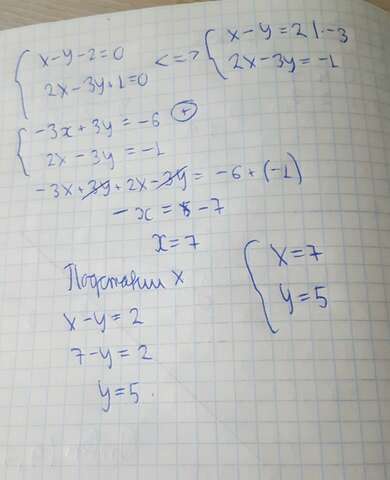 { x-y-2=0 <=> { x-y=2 |·-3
2x-3y+1=0 2x-3y=-1
{ -3x+3y=-6 (+)
2x-3y=-1
-3x+3y+2x-3y= -6+(-1)
-x=-7
x=7
Подставим x
x-y=2
7-y=2
y=5
{ x=7
y=5